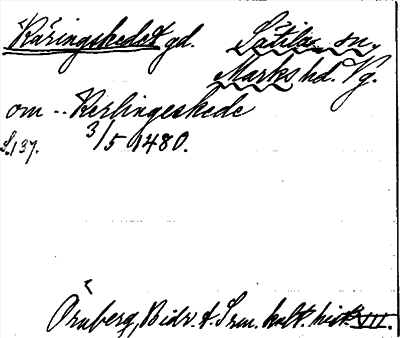 Käringskedet gd. Sätila sn,
Marks hd. Vg.
om -- Kerlingeskede
3/5 1480.
S. 137.
Örnberg, Bidr. t. Srm. kult. hist. VII.